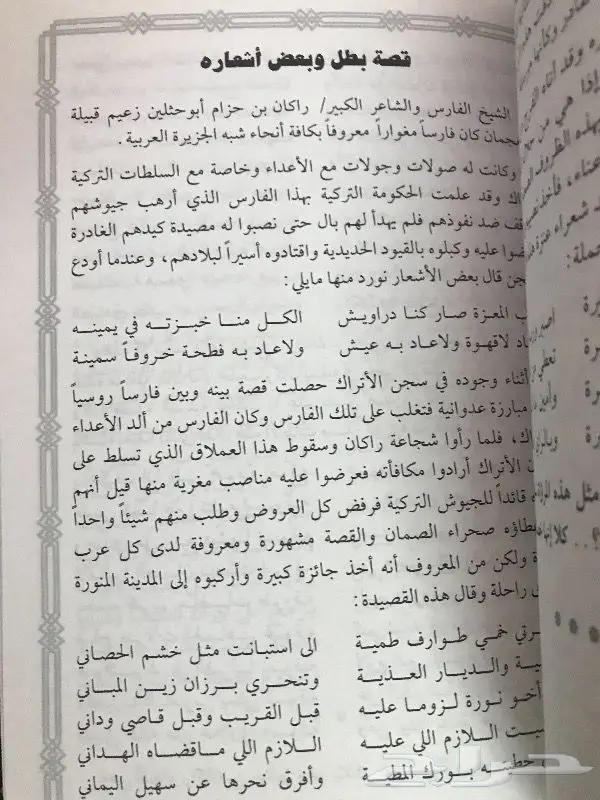 قصة بطل وبعض أشعاره
الشيخ الفارس والشاعر الكبير/ راكان بن حزام أبوحثلين زعيم قبيلة
عجمان كان فارساً مغواراً معروفاً بكافة أنحاء شبه الجزيرة العربية .
وكانت له صولات وجولات مع الأعداء وخاصة مع السلطات التركية
وقد علمت الحكومة التركية بهذا الفارس الذي أرهب جيوشهم
ضد نفوذهم فلم يهدأ لهم بال حتى نصبوا له مصيدة كيدهم الغادرة
عليه وكبلوه بالقيود الحديدية واقتادوه أسيراً لبلادهم، وعندما أودع
قال بعض الأشعار نورد منها مايلي:
المعزة صار كنا دراويش الكل منا خبزته في يمينه
لاقهوة ولاعاد به عيش ولاعاد به فطحة خروفاً سمينة
أثناء وجوده في سجن الأتراك حصلت قصة بينه وبين فارساً روسياً
مبارزة عدوانية فتغلب على تلك الفارس وكان الفارس من ألد الأعداء
فلما رأوا شجاعة راكان وسقوط هذا العملاق الذي تسلط على
الأتراك أرادوا مكافأته فعرضوا عليه مناصب مغرية منها قيل أنهم
قائداً للجيوش التركية فرفض كل العروض وطلب منهم شيئاً واحداً
صحراء الصمان والقصة مشهورة ومعروفة لدى كل عرب
ولكن من المعروف أنه أخذ جائزة كبيرة وأركبوه إلى المدينة المنورة
راحلة وقال هذه القصيدة :
خمي طوارف طمية الى استبانت مثل خشم الحصاني
والديار العذية وتنحري برزان زين المباني
أخو نورة لزوما عليه قبل القريب وقبل قاصي وداني
اللازم اللي عليه اللازم اللي ماقضاه الهداني
بورك المطية وأفرق نحرها عن سهيل اليماني
حراج